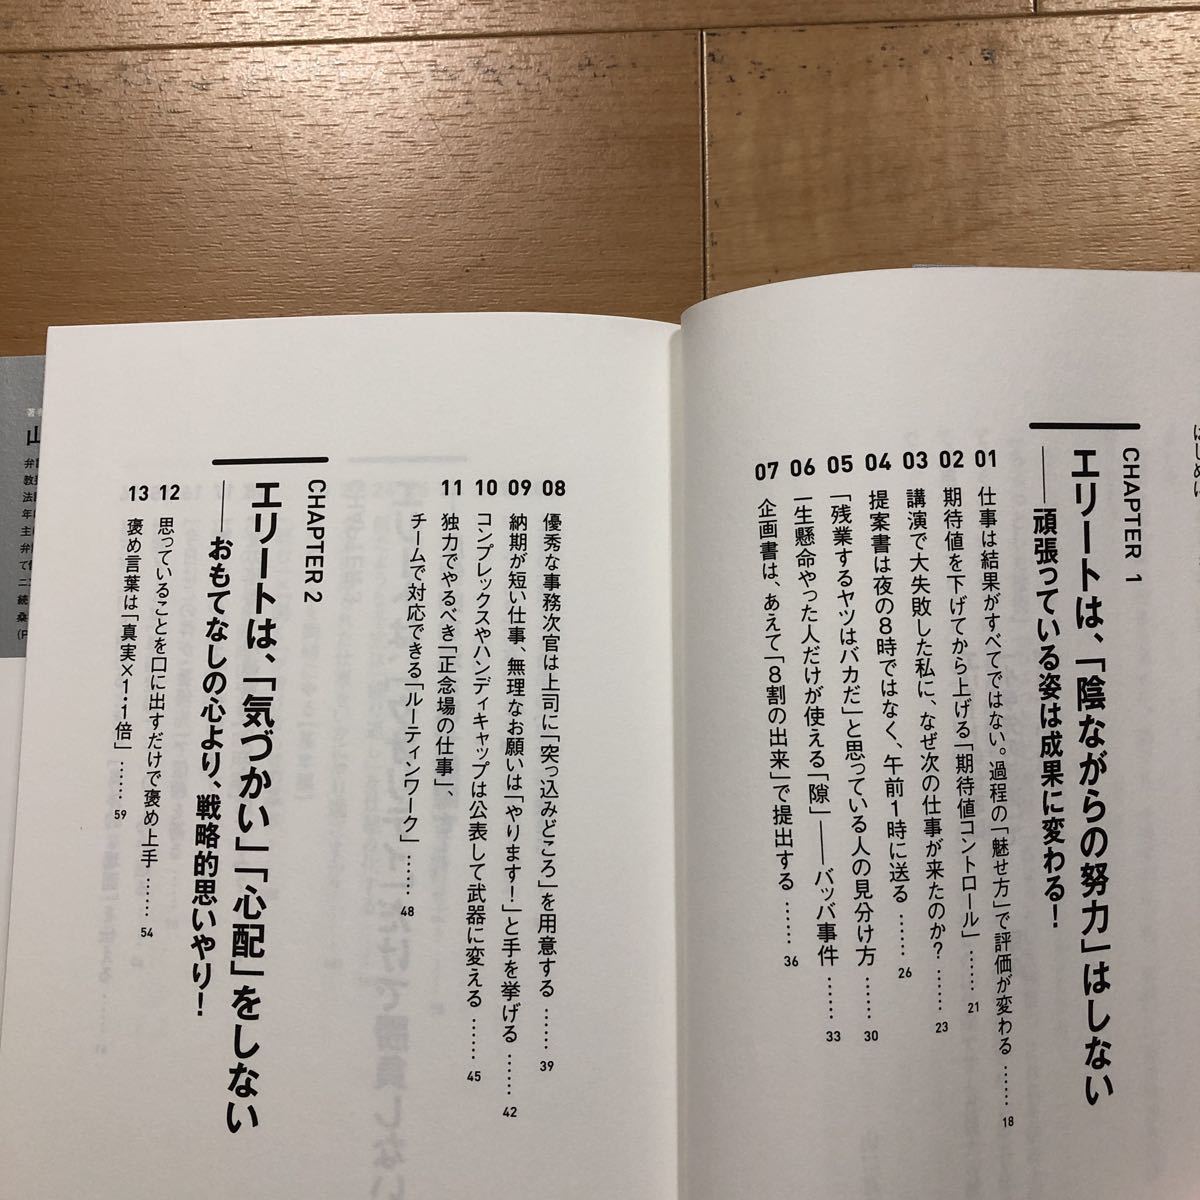 はじめに
CHAPTER 1
エリートは、「陰ながらの努力」はしない
——頑張っている姿は成果に変わる！
01 仕事は結果がすべてではない。過程の「魅せ方」で評価が変わる …… 18
02 期待値を下げてから上げる「期待値コントロール」 …… 21
03 講演で大失敗した私に、なぜ次の仕事が来たのか？ …… 23
04 提案書は夜の8時ではなく、午前1時に送る …… 26
05 「残業するヤツはバカだ」と思っている人の見分け方 …… 30
06 一生懸命やった人だけが使える「隙」——バッバ事件 …… 33
07 企画書は、あえて「8割の出来」で提出する …… 36
08 優秀な事務次官は上司に「突っ込みどころ」を用意する …… 39
09 納期が短い仕事、無理なお願いは「やります！」と手を挙げる …… 42
10 コンプレックスやハンディキャップは公表して武器に変える …… 45
11 独力でやるべき「正念場の仕事」、
チームで対応できる「ルーティンワーク」 …… 48
CHAPTER 2
エリートは、「気づかい」「心配」をしない
——おもてなしの心より、戦略的思いやり！
12 思っていることを口に出すだけで褒め上手 …… 54
13 褒め言葉は「真実×1・1倍」 …… 59